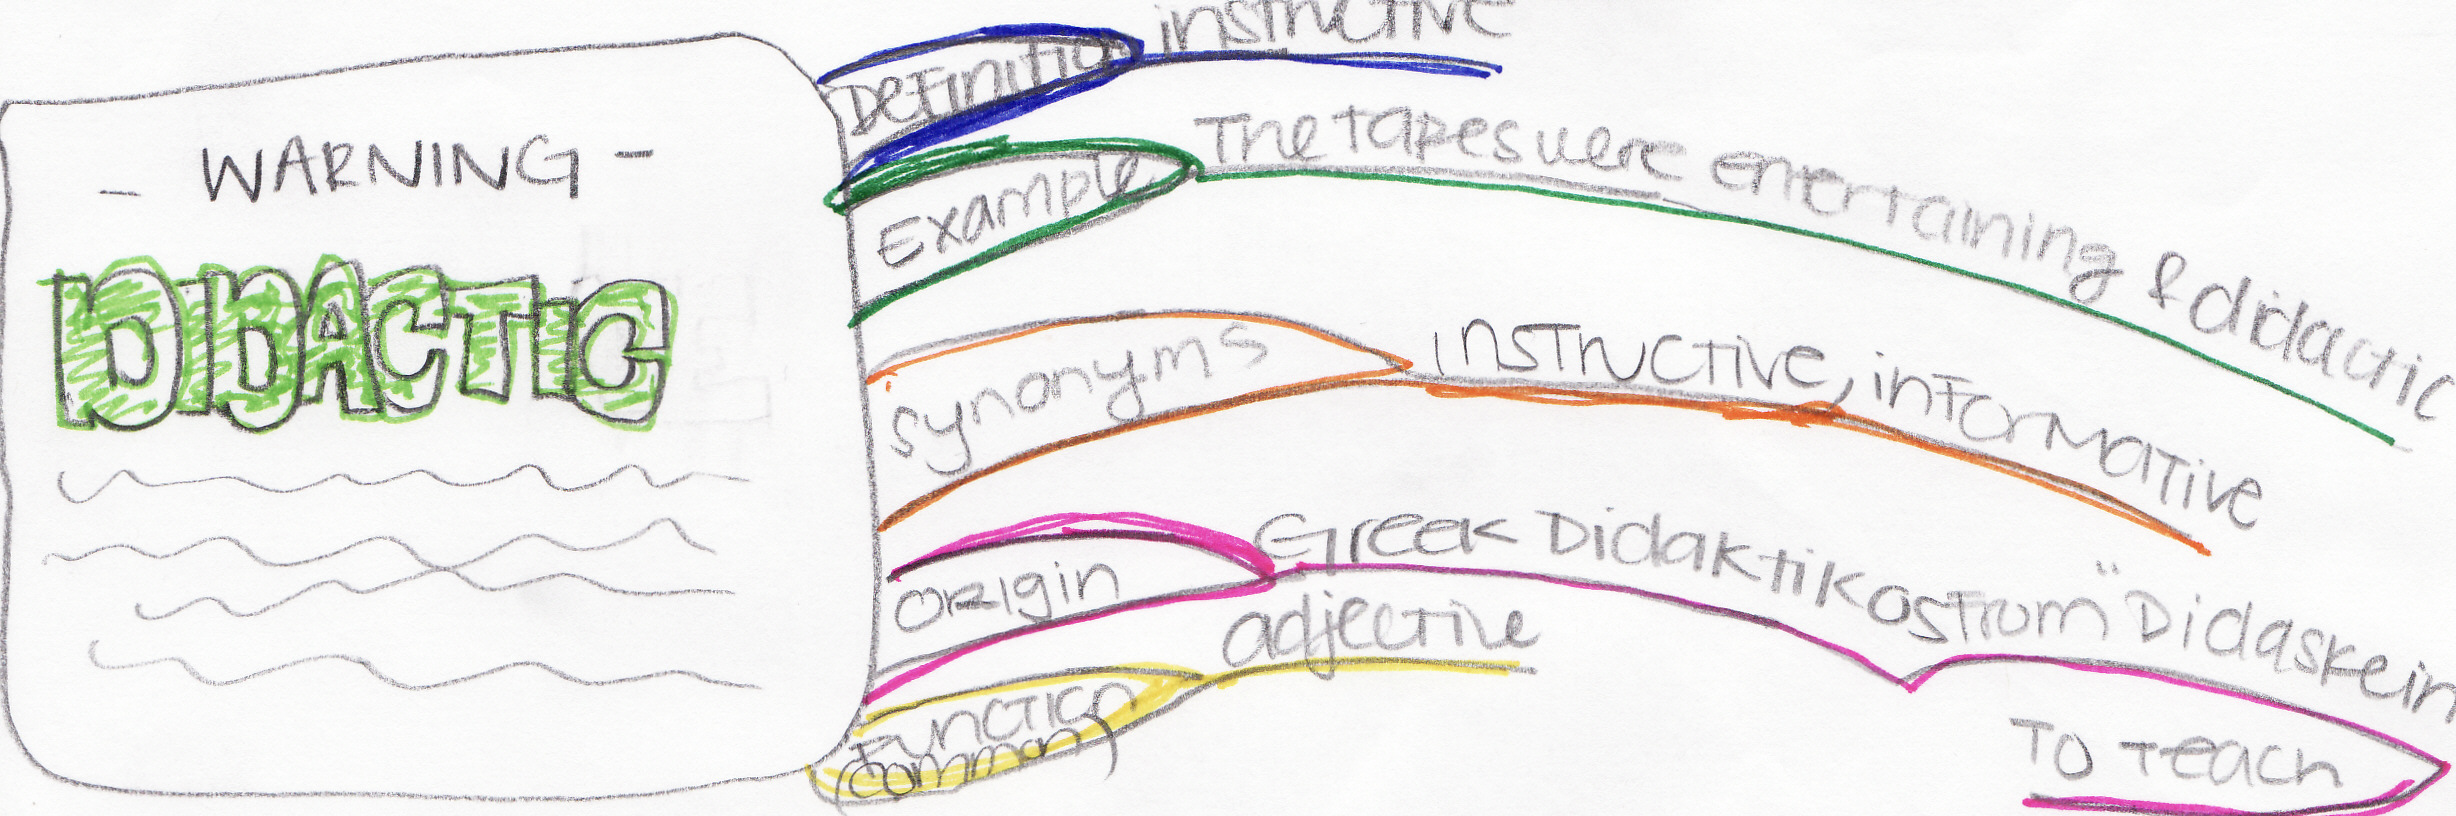 - WARNING -
DIDACTIC
Definitio
instructive
Example
The tapes were entertaining & didactic
synonyms
instructive, informative
origin
Greek Didaktikos from "Didaskein
To teach
Function
(common)
adjective